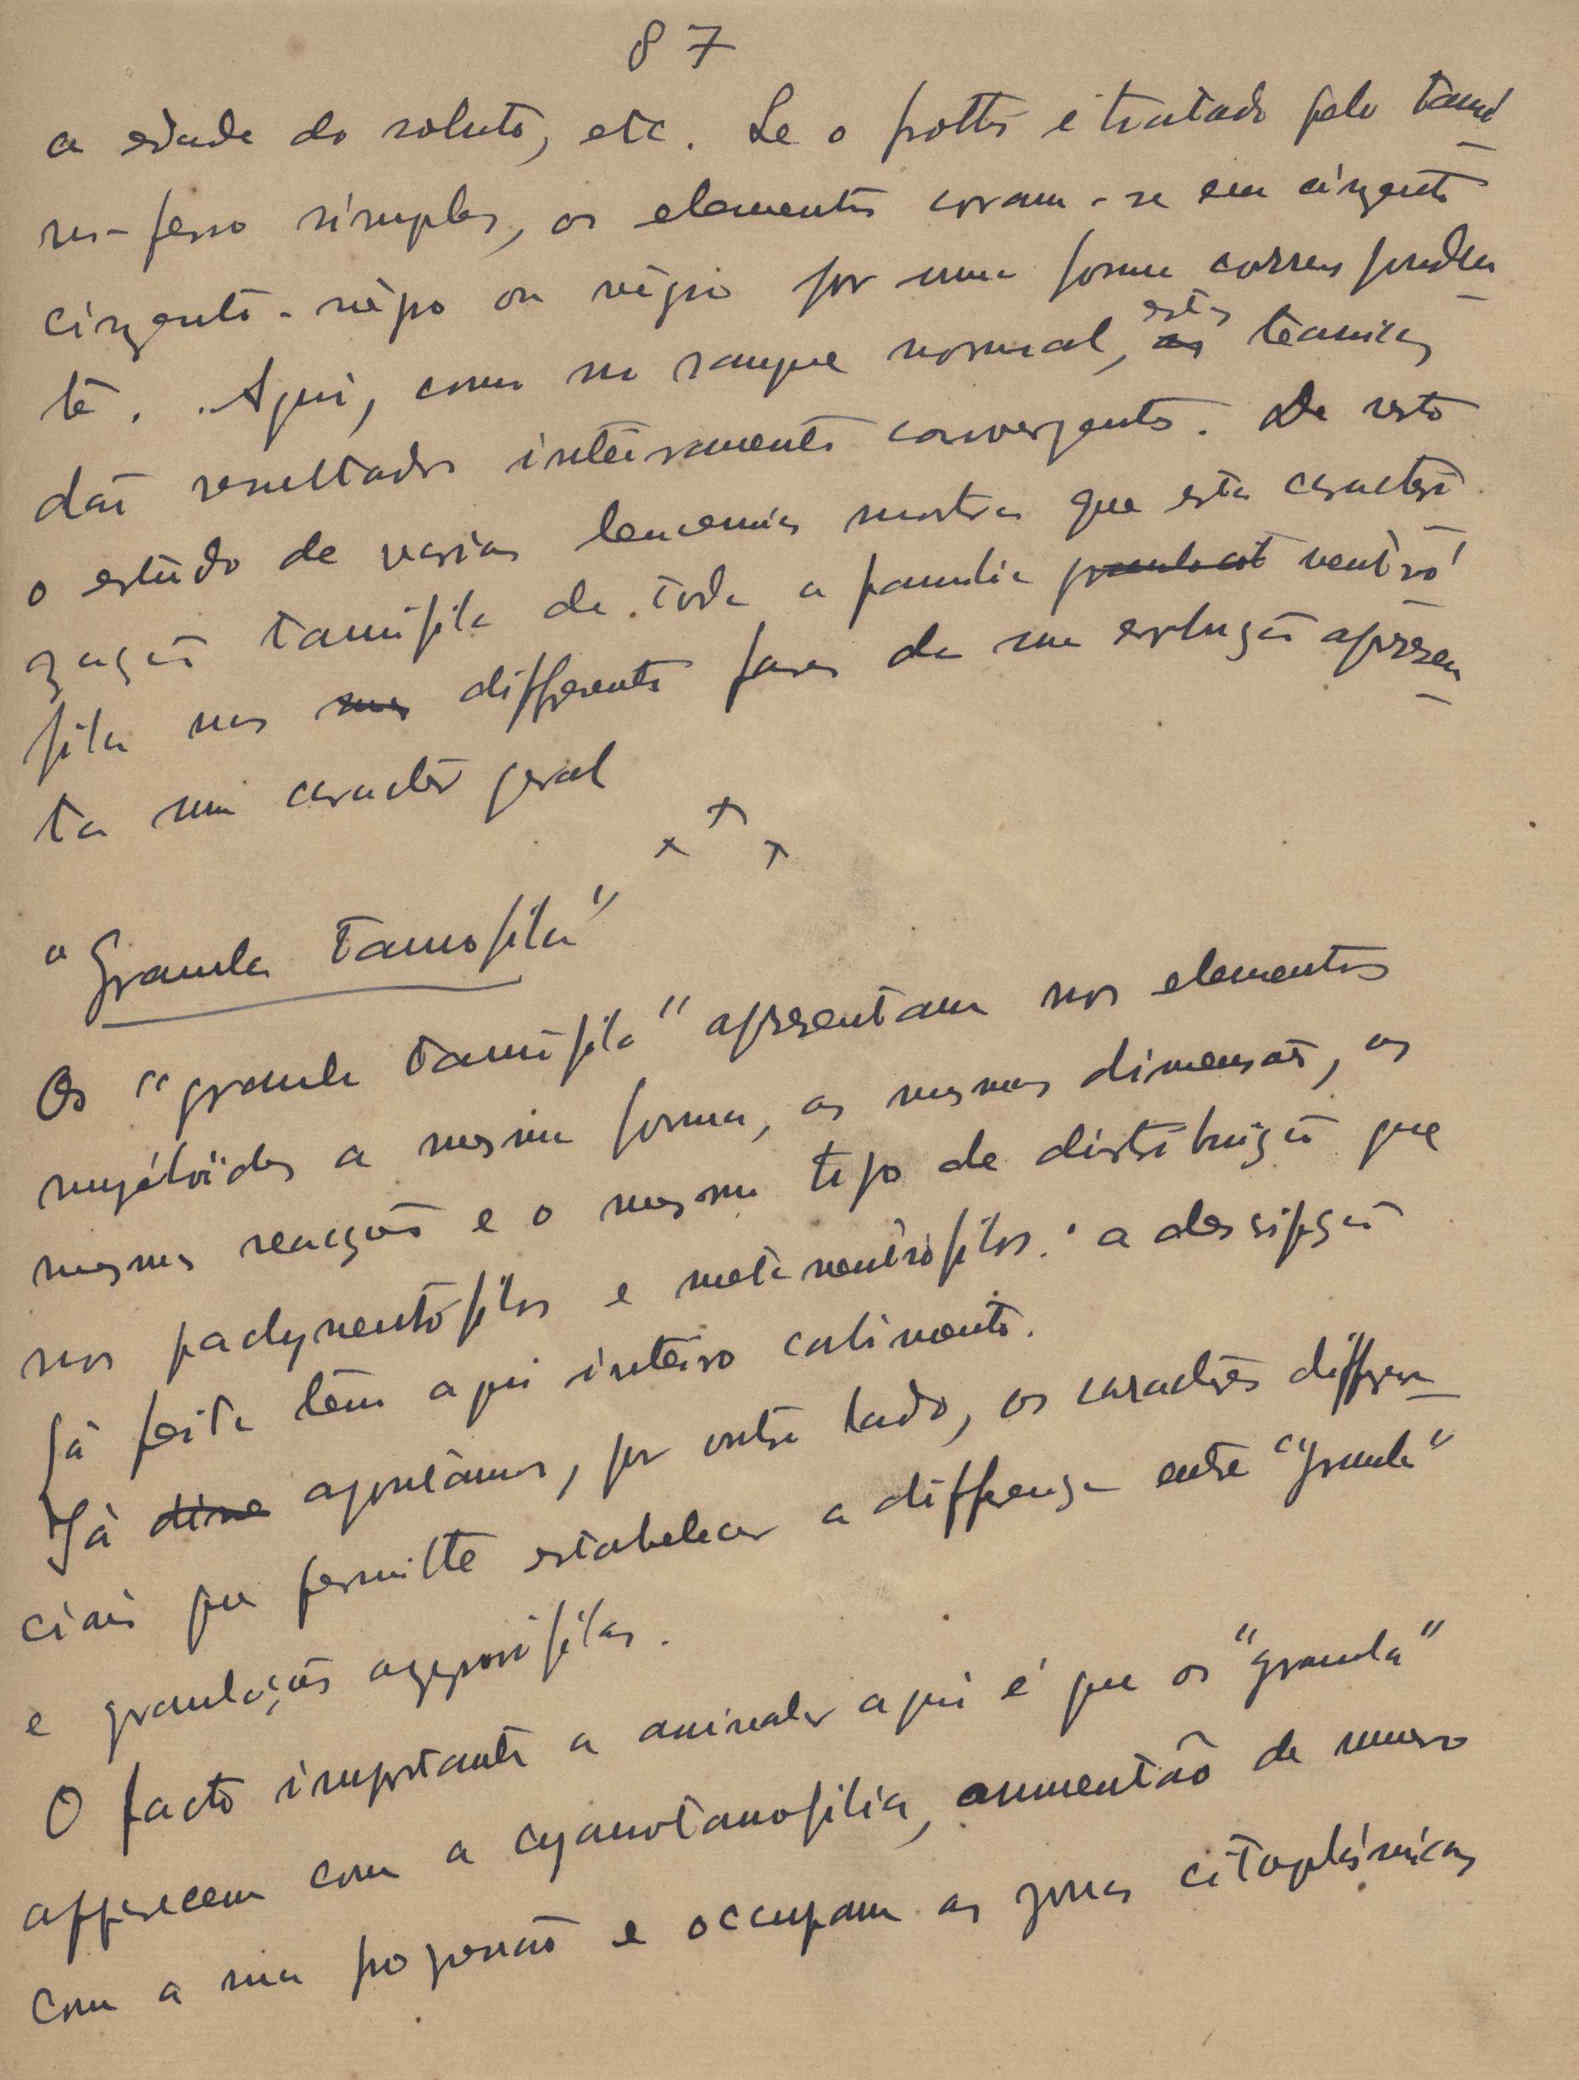 87
a edade do soluto, etc. Se o frottis é tratado pelo tanno
res-ferro simples, os elementos coram-se em cinzento
cinzento-negro ou négro por uma forma corresponden
te. Aqui, como no sangue normal, ~~as~~ estas technicas
dão resultados inteiramente convergentes. De resto
o estudo de varias leucemias mostra que esta caracteri
zação tannofila de toda a familia ~~granulocit~~ neutró
fila nas ~~suas~~ differentes fases da sua evolução apresen
ta um caracter geral
x x x
"Granula tannofila"
Os "granula tannofila" apresentam nos elementos
myélóides a mesma forma, as mesmas dimensões, as
mesmas reacções e o mesmo tipo de distribuição que
nos pachyneutrófilos e metaneutrófilos: a descripção
já feita têm aqui inteiro cabimento.
Já ~~disse~~ apontámos, por outro lado, os caractéres differen
ciais que permitte estabelecer a differença entre "granula"
e granulações azurófilas.
O facto importante a assinalar aqui é que os "granula"
apparecem com a cyanotanofilia, aumentão de numero
com a sua progressão e occupam as zonas citoplásmicas